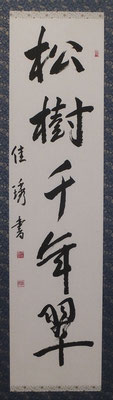 松樹千年翠
佳琇書